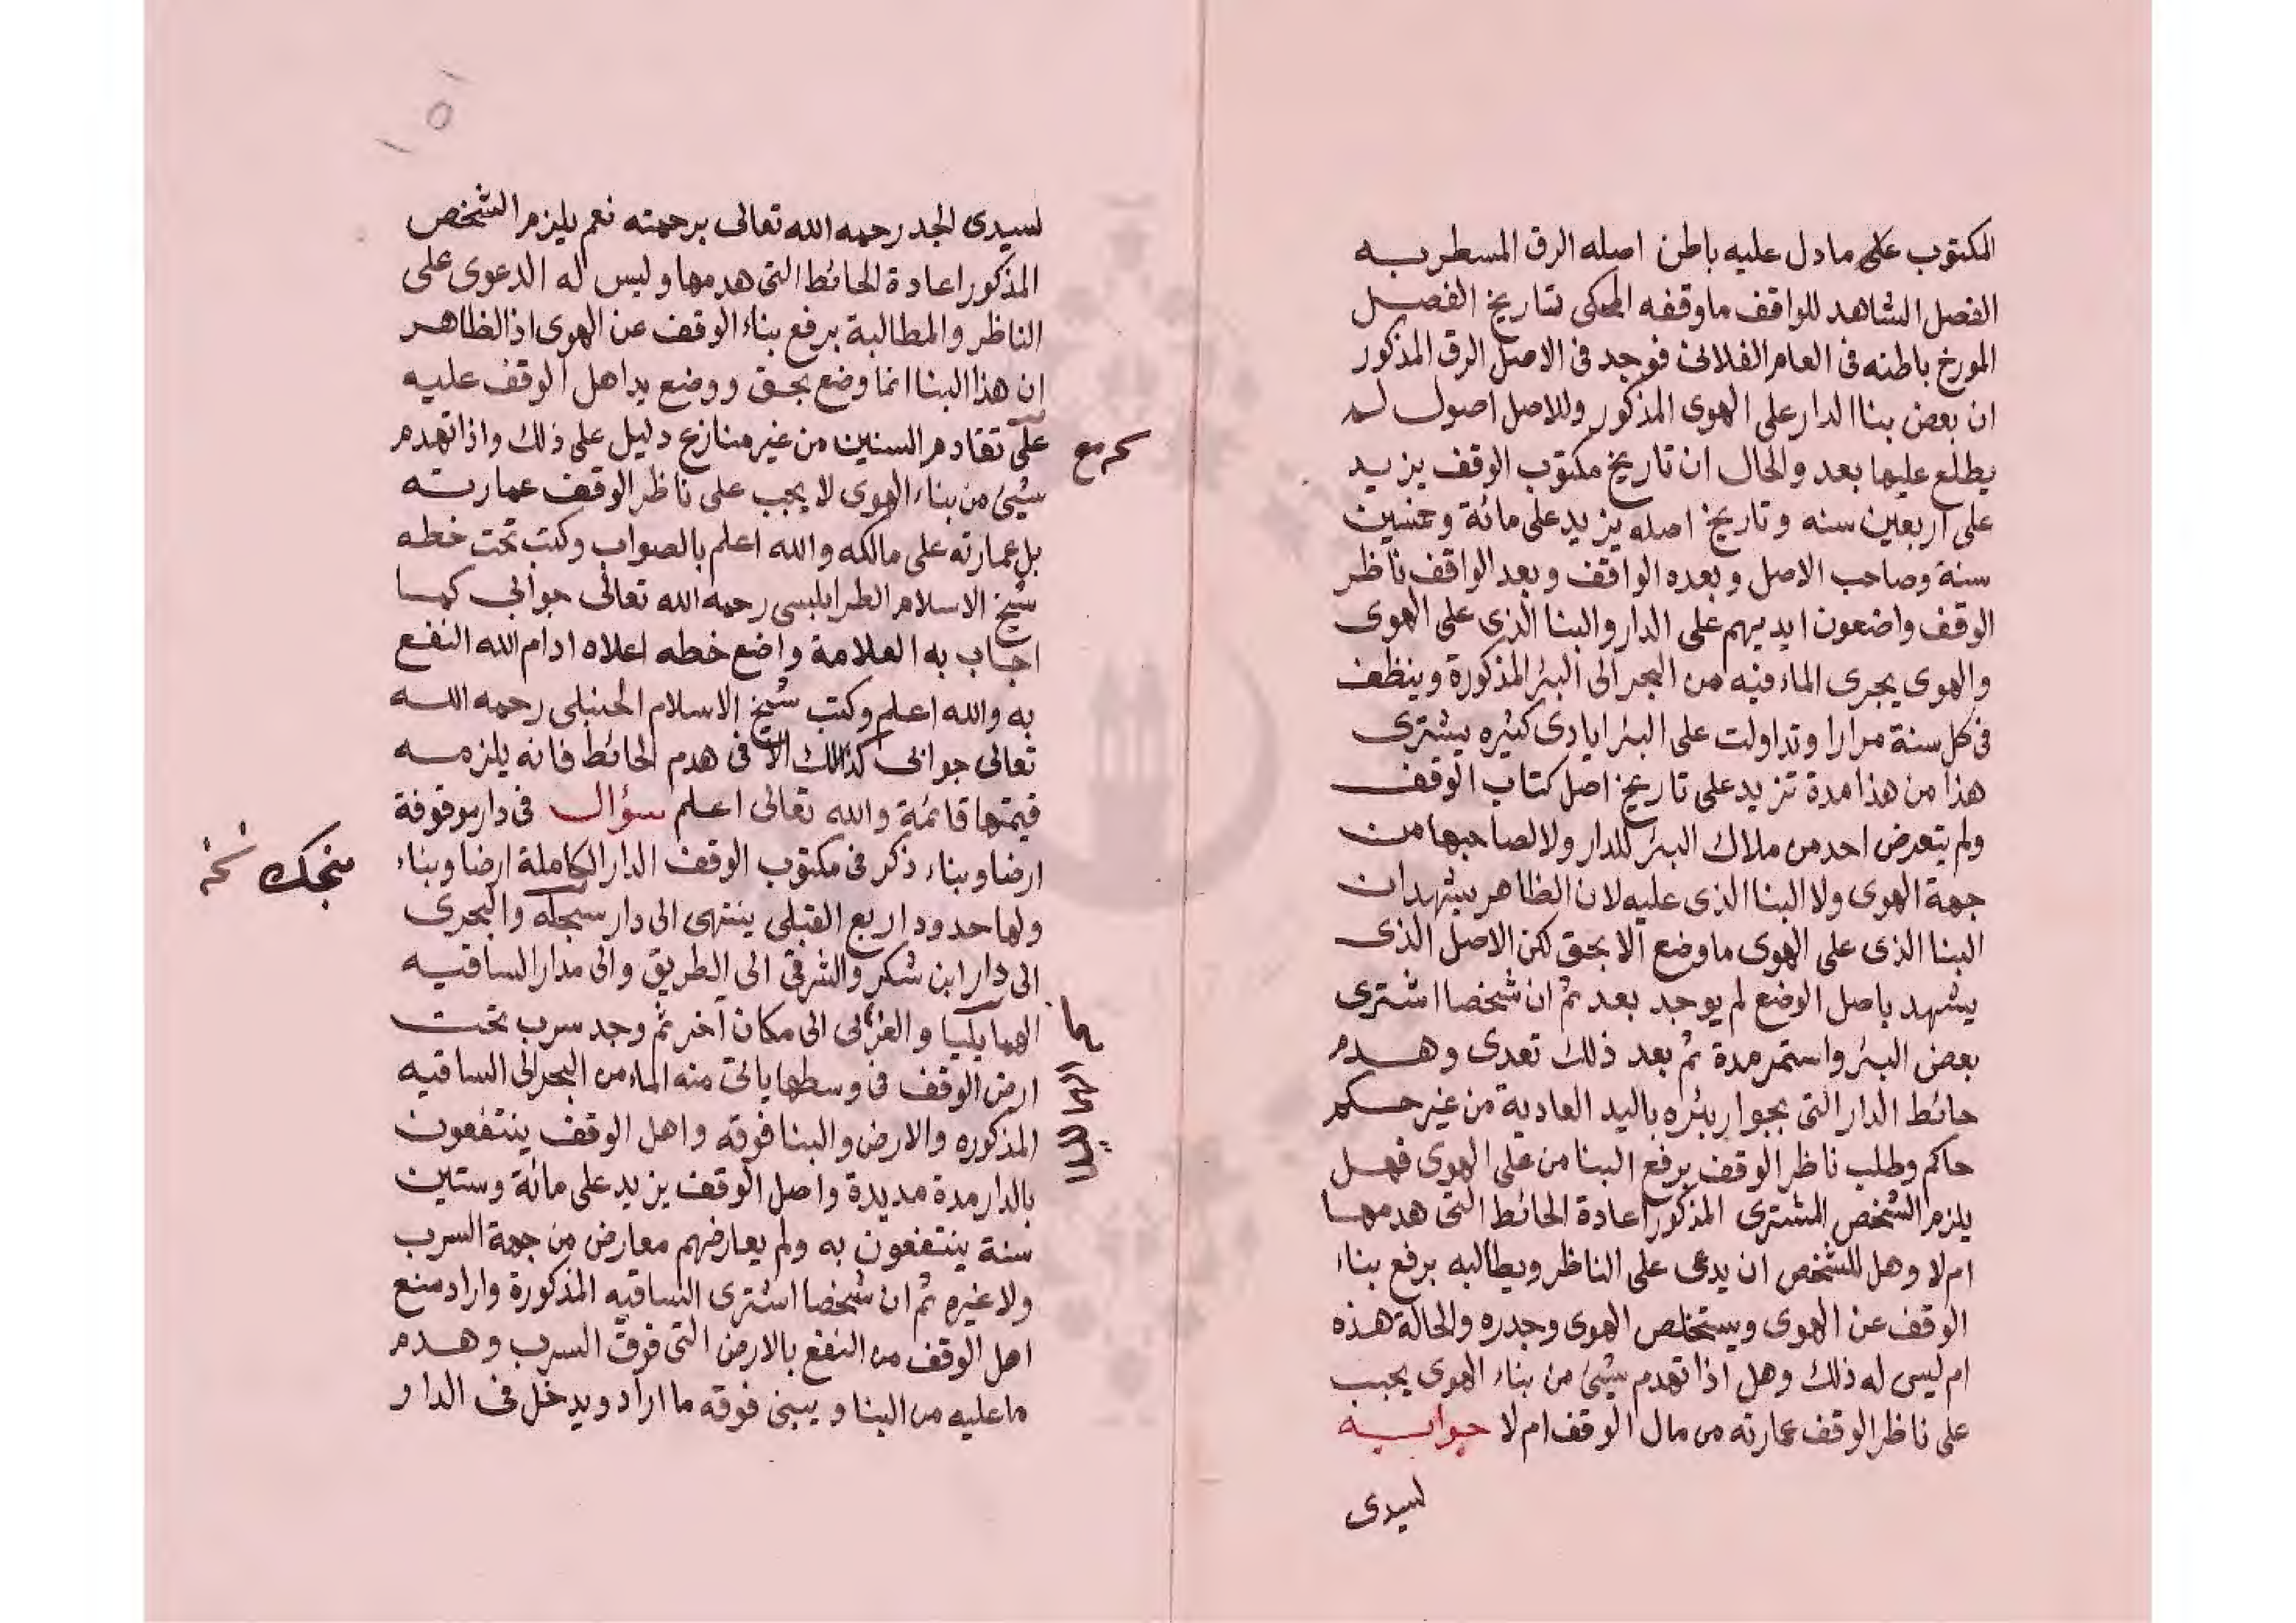 المكتوب على مادل عليه باطن اصله الرق المسطر به
الفصل الشاهد للواقف ماوقفه المحكى بتاريخ الفصل
المورخ باطنه فى العام الفلانى فوجد فى الاصل الرق المذكور
ان بعض بنا الدار على الهوى المذكور وللاصل اصول لم
يطلع عليها بعد والحال ان تاريخ مكتوب الوقف يزيد
على اربعين سنه وتاريخ اصله يزيد على مائة وخمسين
سنة وصاحب الاصل وبعده الواقف وبعد الواقف ناظر
الوقف واضعون ايديهم على الدار والبنا الذى على الهوى
والهوى يجرى الماء فيه من البحر الى البئر المذكورة وينظف
فى كل سنة مرارا وتداولت على البئر ايادى كثيره يشترى
هذا من هذا مدة تزيد على تاريخ اصل كتاب الوقف
ولم يتعرض احد من ملاك البئر للدار ولا لصاحبها من
جهة الهوى ولا البنا الذى عليه لان الظاهر يشهد ان
البنا الذى على الهوى ماوضع الا بحق لكن الاصل الذى
يشهد باصل الوضع لم يوجد بعد ثم ان شخصا اشترى
بعض البئر واستمر مدة ثم بعد ذلك تعدى وهدم
حائط الدار التى بجوار بئره باليد العادية من غير حكم
حاكم وطلب ناظر الوقف برفع البنا من على الهوى فهل
يلزم الشخص المشترى المذكور اعادة الحائط التى هدمها
ام لا وهل للشخص ان يدعى على الناظر ويطالبه برفع بناء
الوقف عن الهوى ويستخلص الهوى وجدره والحالة هذه
ام ليس له ذلك وهل اذا تهدم شيئ من بناء الهوى يجب
على ناظر الوقف عمارته من مال الوقف ام لا جوابه
لسيدى
١٥١
لسيدى الجد رحمه الله تعالى برحمته نعم يلزم الشخص
المذكور اعادة الحائط التى هدمها وليس له الدعوى على
الناظر والمطالبة برفع بناء الوقف عن الهوى اذ الظاهر
ان هذا البنا انما وضع بحق ووضع يد اهل الوقف عليه
على تقادم السنين من غير منازع دليل على ذلك واذا تهدم
شيئ من بناء الهوى لا يجب على ناظر الوقف عمارته
بل عمارته على مالكه والله اعلم بالصواب وكتب تحت خطه
شيخ الاسلام الطرابلسى رحمه الله تعالى جوابى كما
اجاب به العلامة واضع خطه اعلاه ادام الله النفع
به والله اعلم وكتب شيخ الاسلام الحنبلى رحمه الله
تعالى جوابى كذلك الا فى هدم الحائط فانه يلزمه
قيمتها قائمة والله تعالى اعلم سؤال فى دار موقوفة
ارضا وبناء ذكر فى مكتوب الوقف الدار الكاملة ارضا وبناء
منجك نخ
ولها حدود اربع القبلى ينتهى الى دار سنجك والبحرى
الى دار ابن شكر والشرقى الى الطريق والى مدار الساقيه
والغربى الى مكان آخر ثم وجد سرب تحت
ارض الوقف فى وسطها ياتى منه الماء من البحر الى الساقيه
المذكوره والارض والبنا فوقه واهل الوقف ينتفعون
بالدار مدة مديدة واصل الوقف يزيد على مائة وستين
سنة ينتفعون به ولم يعارضهم معارض من جهة السرب
ولا غيره ثم ان شخصا اشترى الساقيه المذكورة واراد منع
اهل الوقف من النفع بالارض التى فوق السرب وهدم
ماعليه من البنا ويبنى فوقه ما اراد ويدخل فى الدار